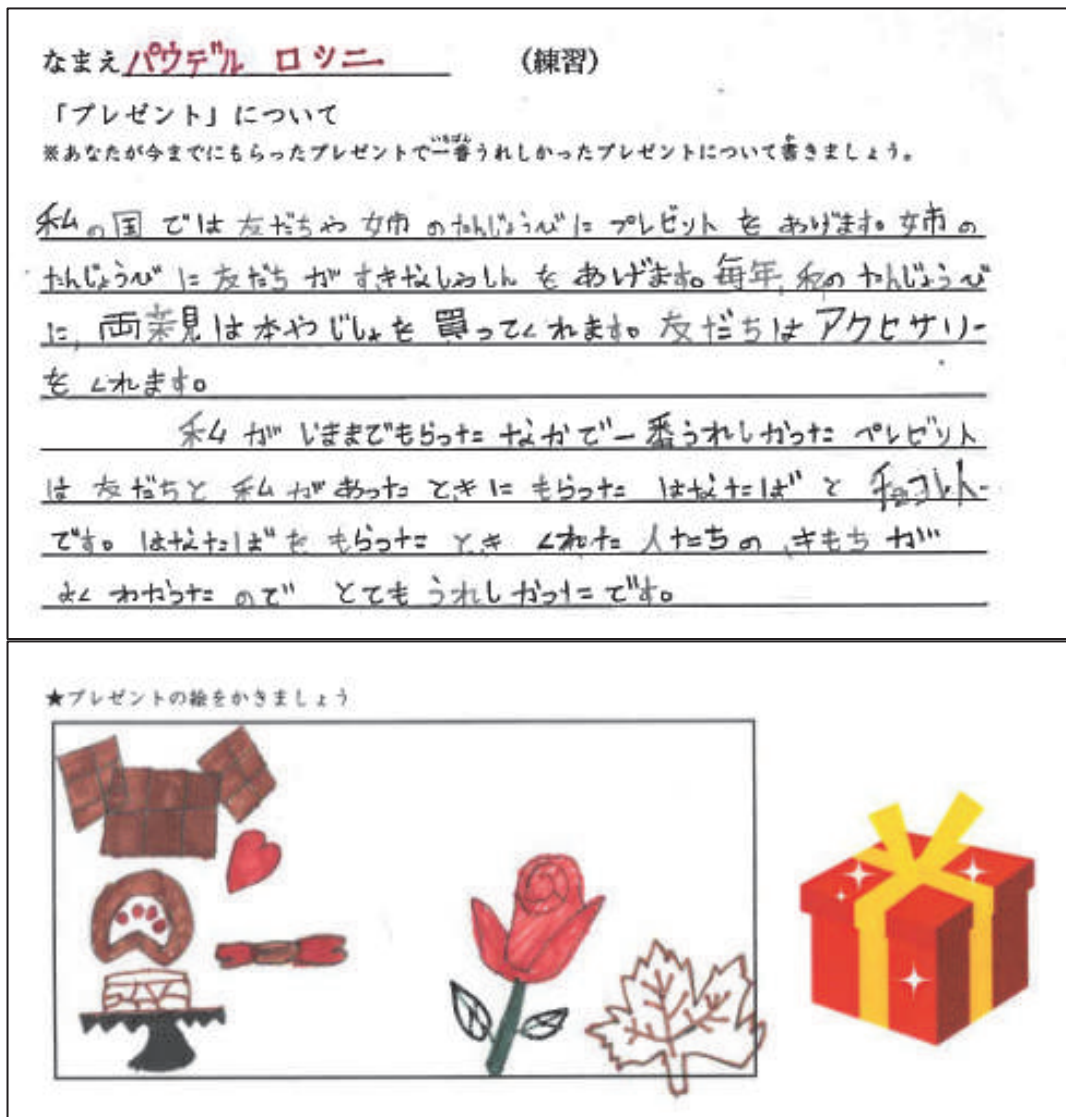 なまえ パウデル ロツニ （練習）
「プレゼント」について
いちばん か
※あなたが今までにもらったプレゼントで一番うれしかったプレゼントについて書きましょう。
私の国では友だちや姉のたんじょうびにプレゼットをあげます。姉の
たんじょうびに友だちがすきなしゃしんをあげます。毎年、私のたんじょうび
に、両親は本やじしょを買ってくれます。友だちはアクセサリー
をくれます。
私がいままでもらったなかで一番うれしかったペレゼント
は友だちと私があったときにもらったはなたばとチョコレート
です。はなたばをもらったときくれた人たちのきもちが
よくわかったのでとてもうれしかったです。
★プレゼントの絵をかきましょう